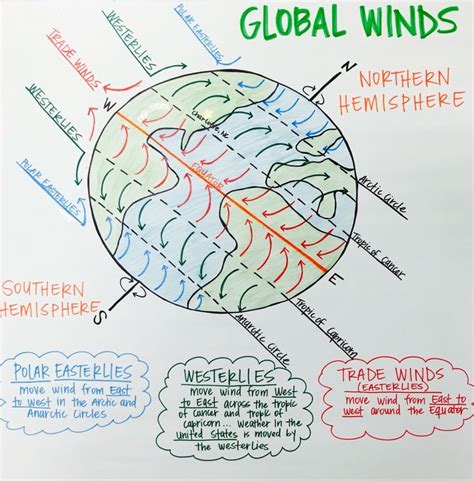 GLOBAL WINDS
WESTERLIES
POLAR EASTERLIES
TRADE WINDS
WESTERLIES
POLAR EASTERLIES
N
NORTHERN
HEMISPHERE
W
Charlotte, NC
EQUATOR
Arctic Circle
Tropic of Cancer
E
Tropic of Capricorn
Anarctic Circle
SOUTHERN
HEMISPHERE
S
POLAR EASTERLIES
move wind from East
to West in the Arctic and
Anarctic Circles
WESTERLIES
move wind from West
to East across the tropic
of cancer and tropic of
capricorn... Weather in the
United States is moved by
the westerlies
TRADE WINDS
(EASTERLIES)
move wind from East to
West around the Equator